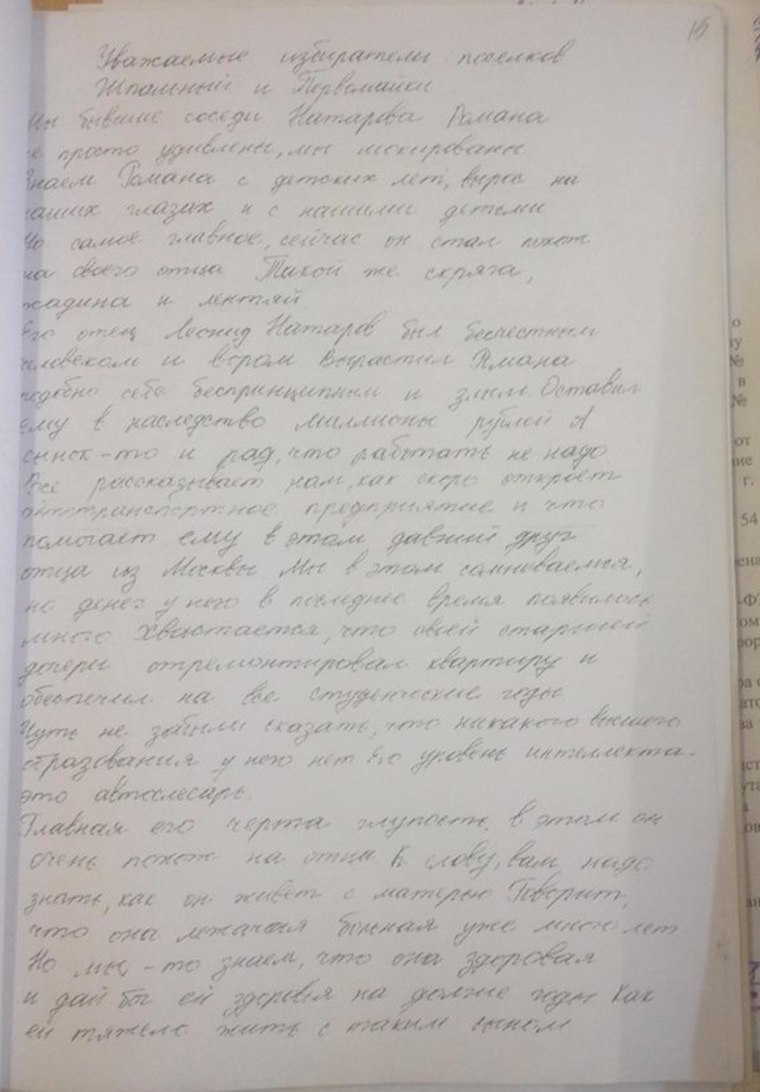 15
Уважаемые избиратели поселков
Шпальный и Первомайки
Мы бывшие соседи Натарова Романа
не просто удивлены, мы шокированы
Знаем Романа с детских лет, вырос на
наших глазах и с нашими детьми
Но самое главное, сейчас он стал похож
на своего отца Такой же скряга,
жадина и лентяй
Его отец Леонид Натаров был бесчестным
человеком и вором Вырастил Романа
подобно себе беспринципным и злым Оставил
ему в наследство миллионы рублей А
сынок-то и рад, что работать не надо
Все рассказывает нам, как скоро откроет
автотранспортное предприятие и что
помогает ему в этом давний друг
отца из Москвы Мы в этом сомневаемся,
но денег у него в последнее время появилось
много Хвастается, что своей старшей
дочери отремонтировал квартиру и
обеспечил на все студенческие годы
Чуть не забыли сказать, что никакого высшего
образования у него нет Его уровень интеллекта-
это автослесарь.
Главная его черта глупость, в этом он
очень похож на отца К слову, вам надо
знать, как он живет с матерью Говорит,
что она лежачая больная уже много лет
Но мы-то знаем, что она здоровая
и дай бог ей здоровья на долгие годы Как
ей тяжело жить с таким сыном